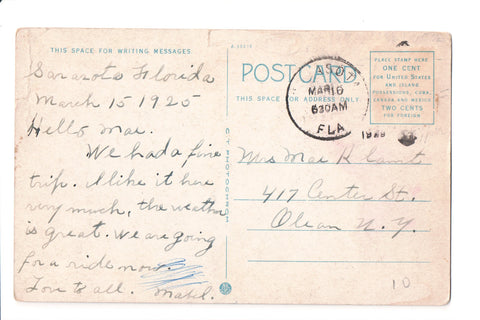 THIS SPACE FOR WRITING MESSAGES
Sarasota Florida
March 15 1925
Hello Mae.
We had a fine
trip. I like it here
very much, the weather
is great. We are going
for a ride now.
Love to all. Mabel.
C. T. PHOTOCHROM
POSTCARD
THIS SPACE FOR ADDRESS ONLY
MAR 16
630AM
FLA.
PLACE STAMP HERE
ONE CENT
FOR UNITED STATES
AND ISLAND
POSSESSIONS, CUBA,
CANADA AND MEXICO
TWO CENTS
FOR FOREIGN
Mrs Mae R
417 Center St.
Olean N.Y.
10